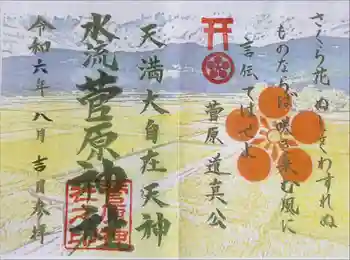 さくら花 ぬしをわすれぬ
ものならば 吹き来む風に
言伝てはせよ
菅原 道真公
天満大自在天神
水流菅原神社
令和六年八月吉日参拝